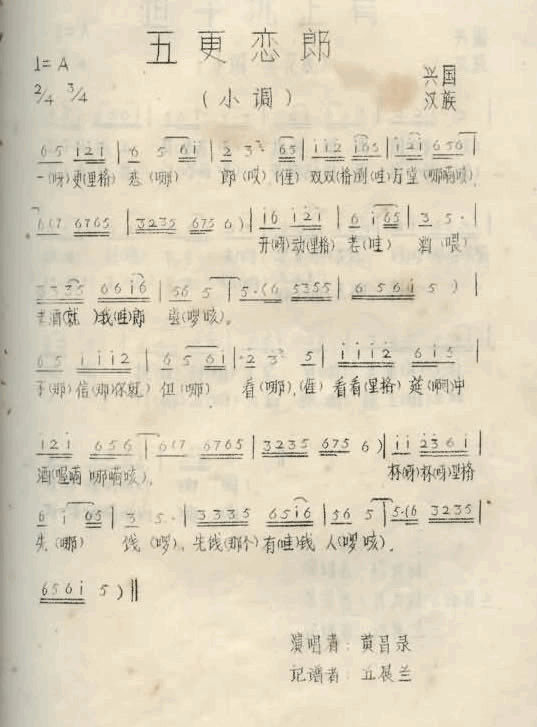 五更恋郎
1=A
2/4 3/4
（小调）
兴国
汉族
6 5 i 2 i | 6 5 6 i | 2 3 6 5 | i i 2 i 6 5 | i 2 i 6 5 6 |
一(呀)更(里格) 恋(哪) 郎(哎)(倕) 双双(格)到(哇)
6 i 7 6 7 6 5 | 3 2 3 5 6 7 5 6 ) | i 6 i 2 i | 6 i 6 5 | 3 5 · |
开(呀)动(里格) 老(哇) 酒(喂)
3 3 3 5 6 6 i 6 | 5 6 5 | 5 · ( 6 5 3 5 5 | 6 5 6 i 5 ) |
老酒(就)我(哇)郎 (啰咳)。
6 5 i i i 2 | 6 5 6 i | 2 3 5 | i i i 2 6 i 5 |
(那)信(那)你就 但(哪) 看(哪),(倕)看看(里格)莲(啊)中
i 2 i 6 5 6 | 6 i 7 6 7 6 5 | 3 2 3 5 6 7 5 6 ) | i i 2 3 6 i |
酒(喔 哪嗬咳)。 杯(呀)杯(呀)里格
6 i 6 5 | 3 5 · | 3 3 3 5 6 5 i 6 | 5 6 5 | 5 · ( 6 3 2 3 5 |
先(哪) 饯(啰), 先饯(那个)有(哇)钱 人(啰咳)。
6 5 6 i 5 ) ‖
演唱者：黄昌录
记谱者：丘展兰